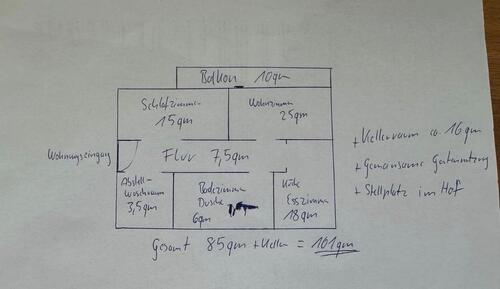 Balkon 10qm
Schlafzimmer
15qm
Wohnzimmer
25qm
Wohnungseingang
Flur 7,5qm
Abstell-
Waschraum
3,5qm
Badezimmer
Dusche
6qm
Küche
Esszimmer
18qm
+ Kellerraum ca. 16qm
+ Gemeinsame Gartennutzung
+ Stellplatz im Hof
Gesamt 85qm + Keller = 101qm